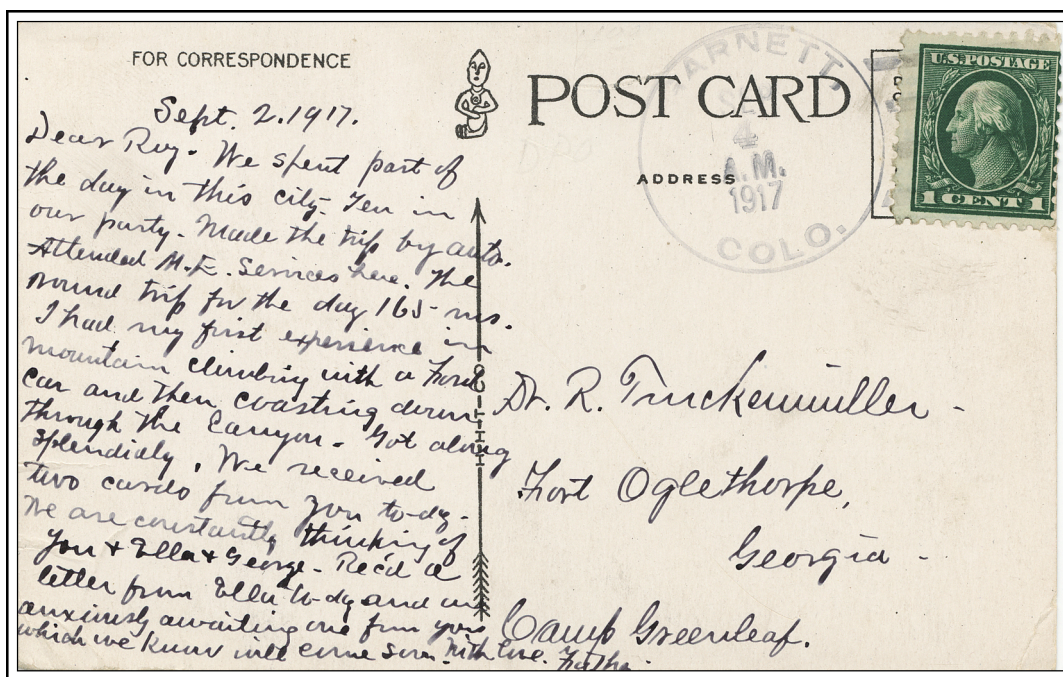 FOR CORRESPONDENCE
Sept. 2. 1917.
Dear Roy. We spent part of
the day in this city. Ten in
our party. Made the trip by auto.
Attended M.E. Services here. The
round trip for the day 165 ms.
I had my first experience in
mountain climbing with a Ford
car and then coasting down
through the Canyon. Got along
splendidly. We received
two cards from you to-dy.
We are constantly thinking of
you & Ella & George. Rec'd a
letter from Ella to-dy and are
anxiously awaiting one from you
which we know will come soon. With love. Father.
POST CARD
ADDRESS
ARNETT,
4
A.M.
1917
COLO.
U.S. POSTAGE
1 CENT 1
Dr. R. Truckenmiller -
Fort Oglethorpe,
Georgia -
Camp Greenleaf.